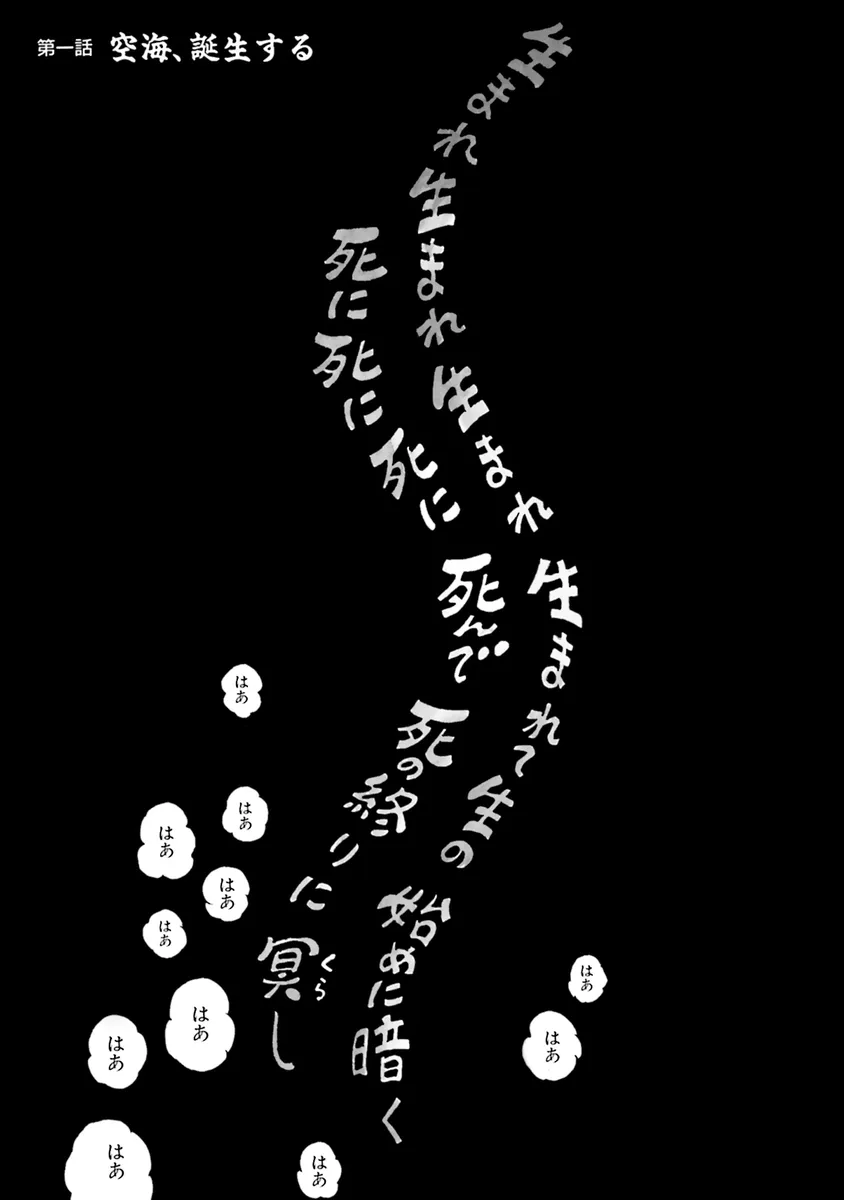 第一話 空海、誕生する
生まれ生まれ生まれ生まれて生の始めに暗く
死に死に死に死んで死の終りに冥し
くら
はあ
はあ
はあ
はあ
はあ
はあ
はあ
はあ
はあ
はあ
はあ